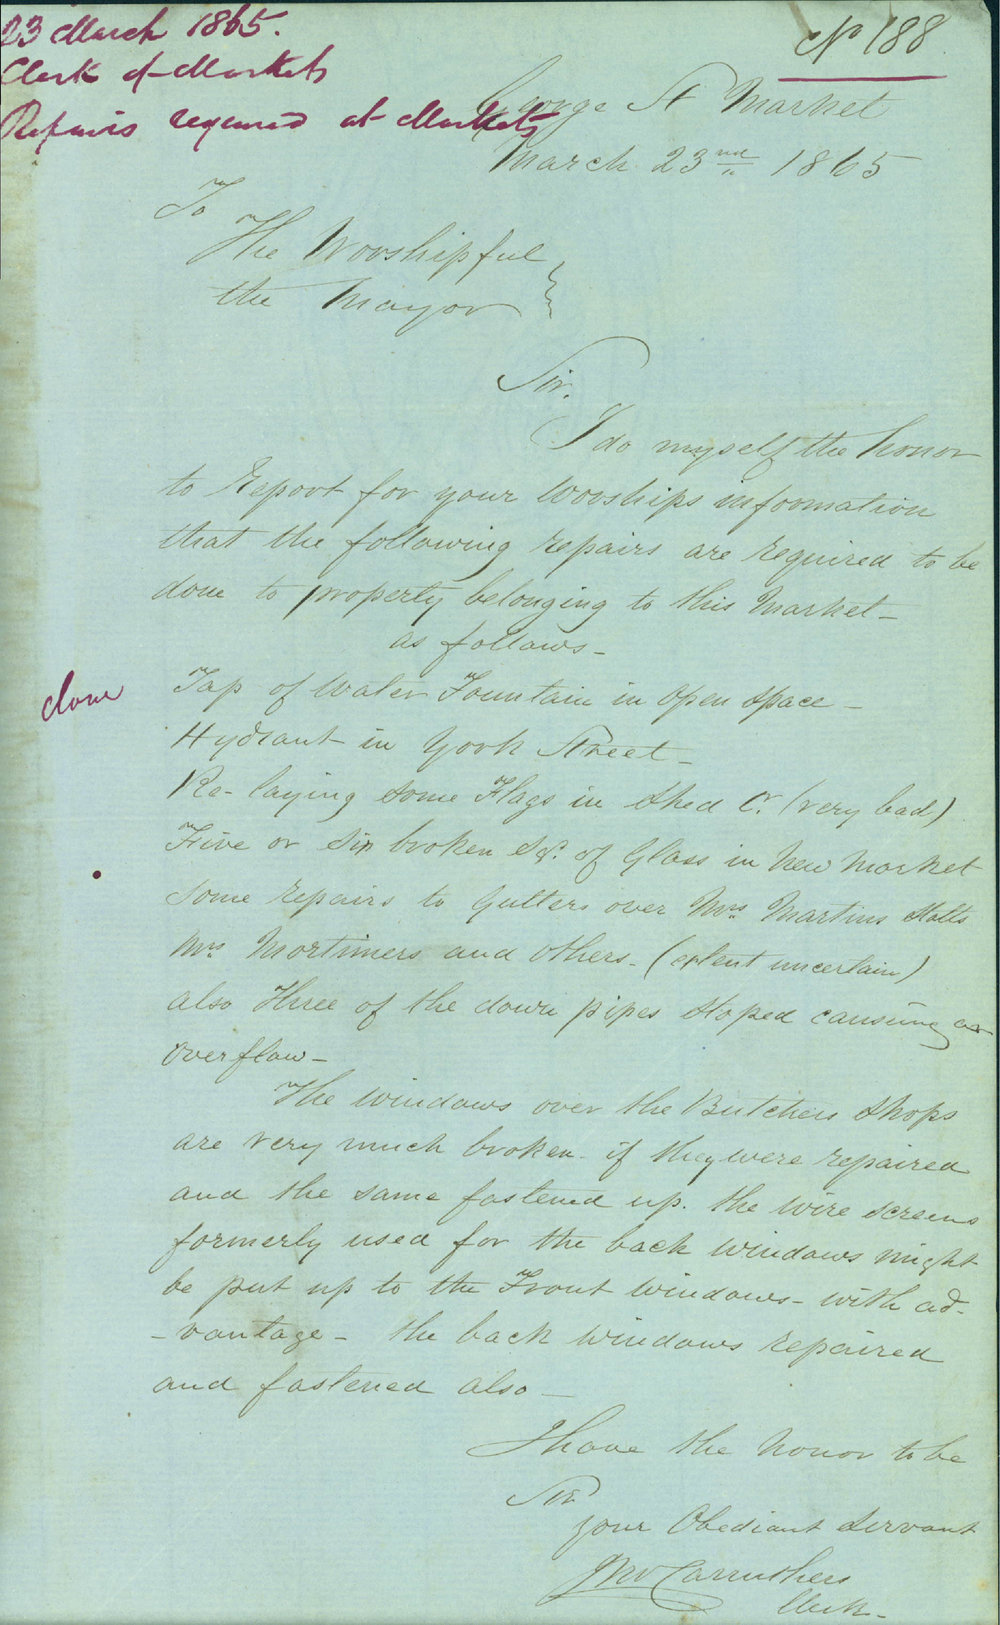 23 March 1865.
Clerk of Markets
Repairs required at Markets
No 188
George St Market
March 23nd 1865
To
The Worshipful
the Mayor
Sir.
I do myself the honor
to report for your worships information
that the following repairs are required to be
done to property belonging to this Market -
as follows -
done
Tap of Water Fountain in open space -
Hydrant in York Street -
Re-laying some Flags in Shed C. (very bad)
Five or six broken Sqs. of Glass in New Market
Some repairs to Gutters over Mrs Martins Stalls
Mrs Mortimers and others - (extent uncertain)
also Three of the down pipes stoped causeing an
overflow -
The windows over the Butchers Shops
are very much broken - if they were repaired
and the same fastened up. the wire screens
formerly used for the back windows might
be put up to the Front windows - with ad-
-vantage - the back windows repaired
and fastened also -
I have the honor to be
Sir
your Obediant Servant
Jno Carruthers
Clerk -